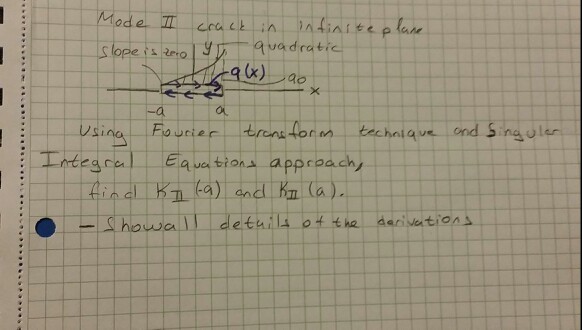 Mode II crack in infinite plane
slope is zero y quadratic
q(x) q0
x
-a a
Using Fourier transform technique and Singuler
Integral Equations approach,
find KII (-a) and KII (a).
- Show all details of the derivations